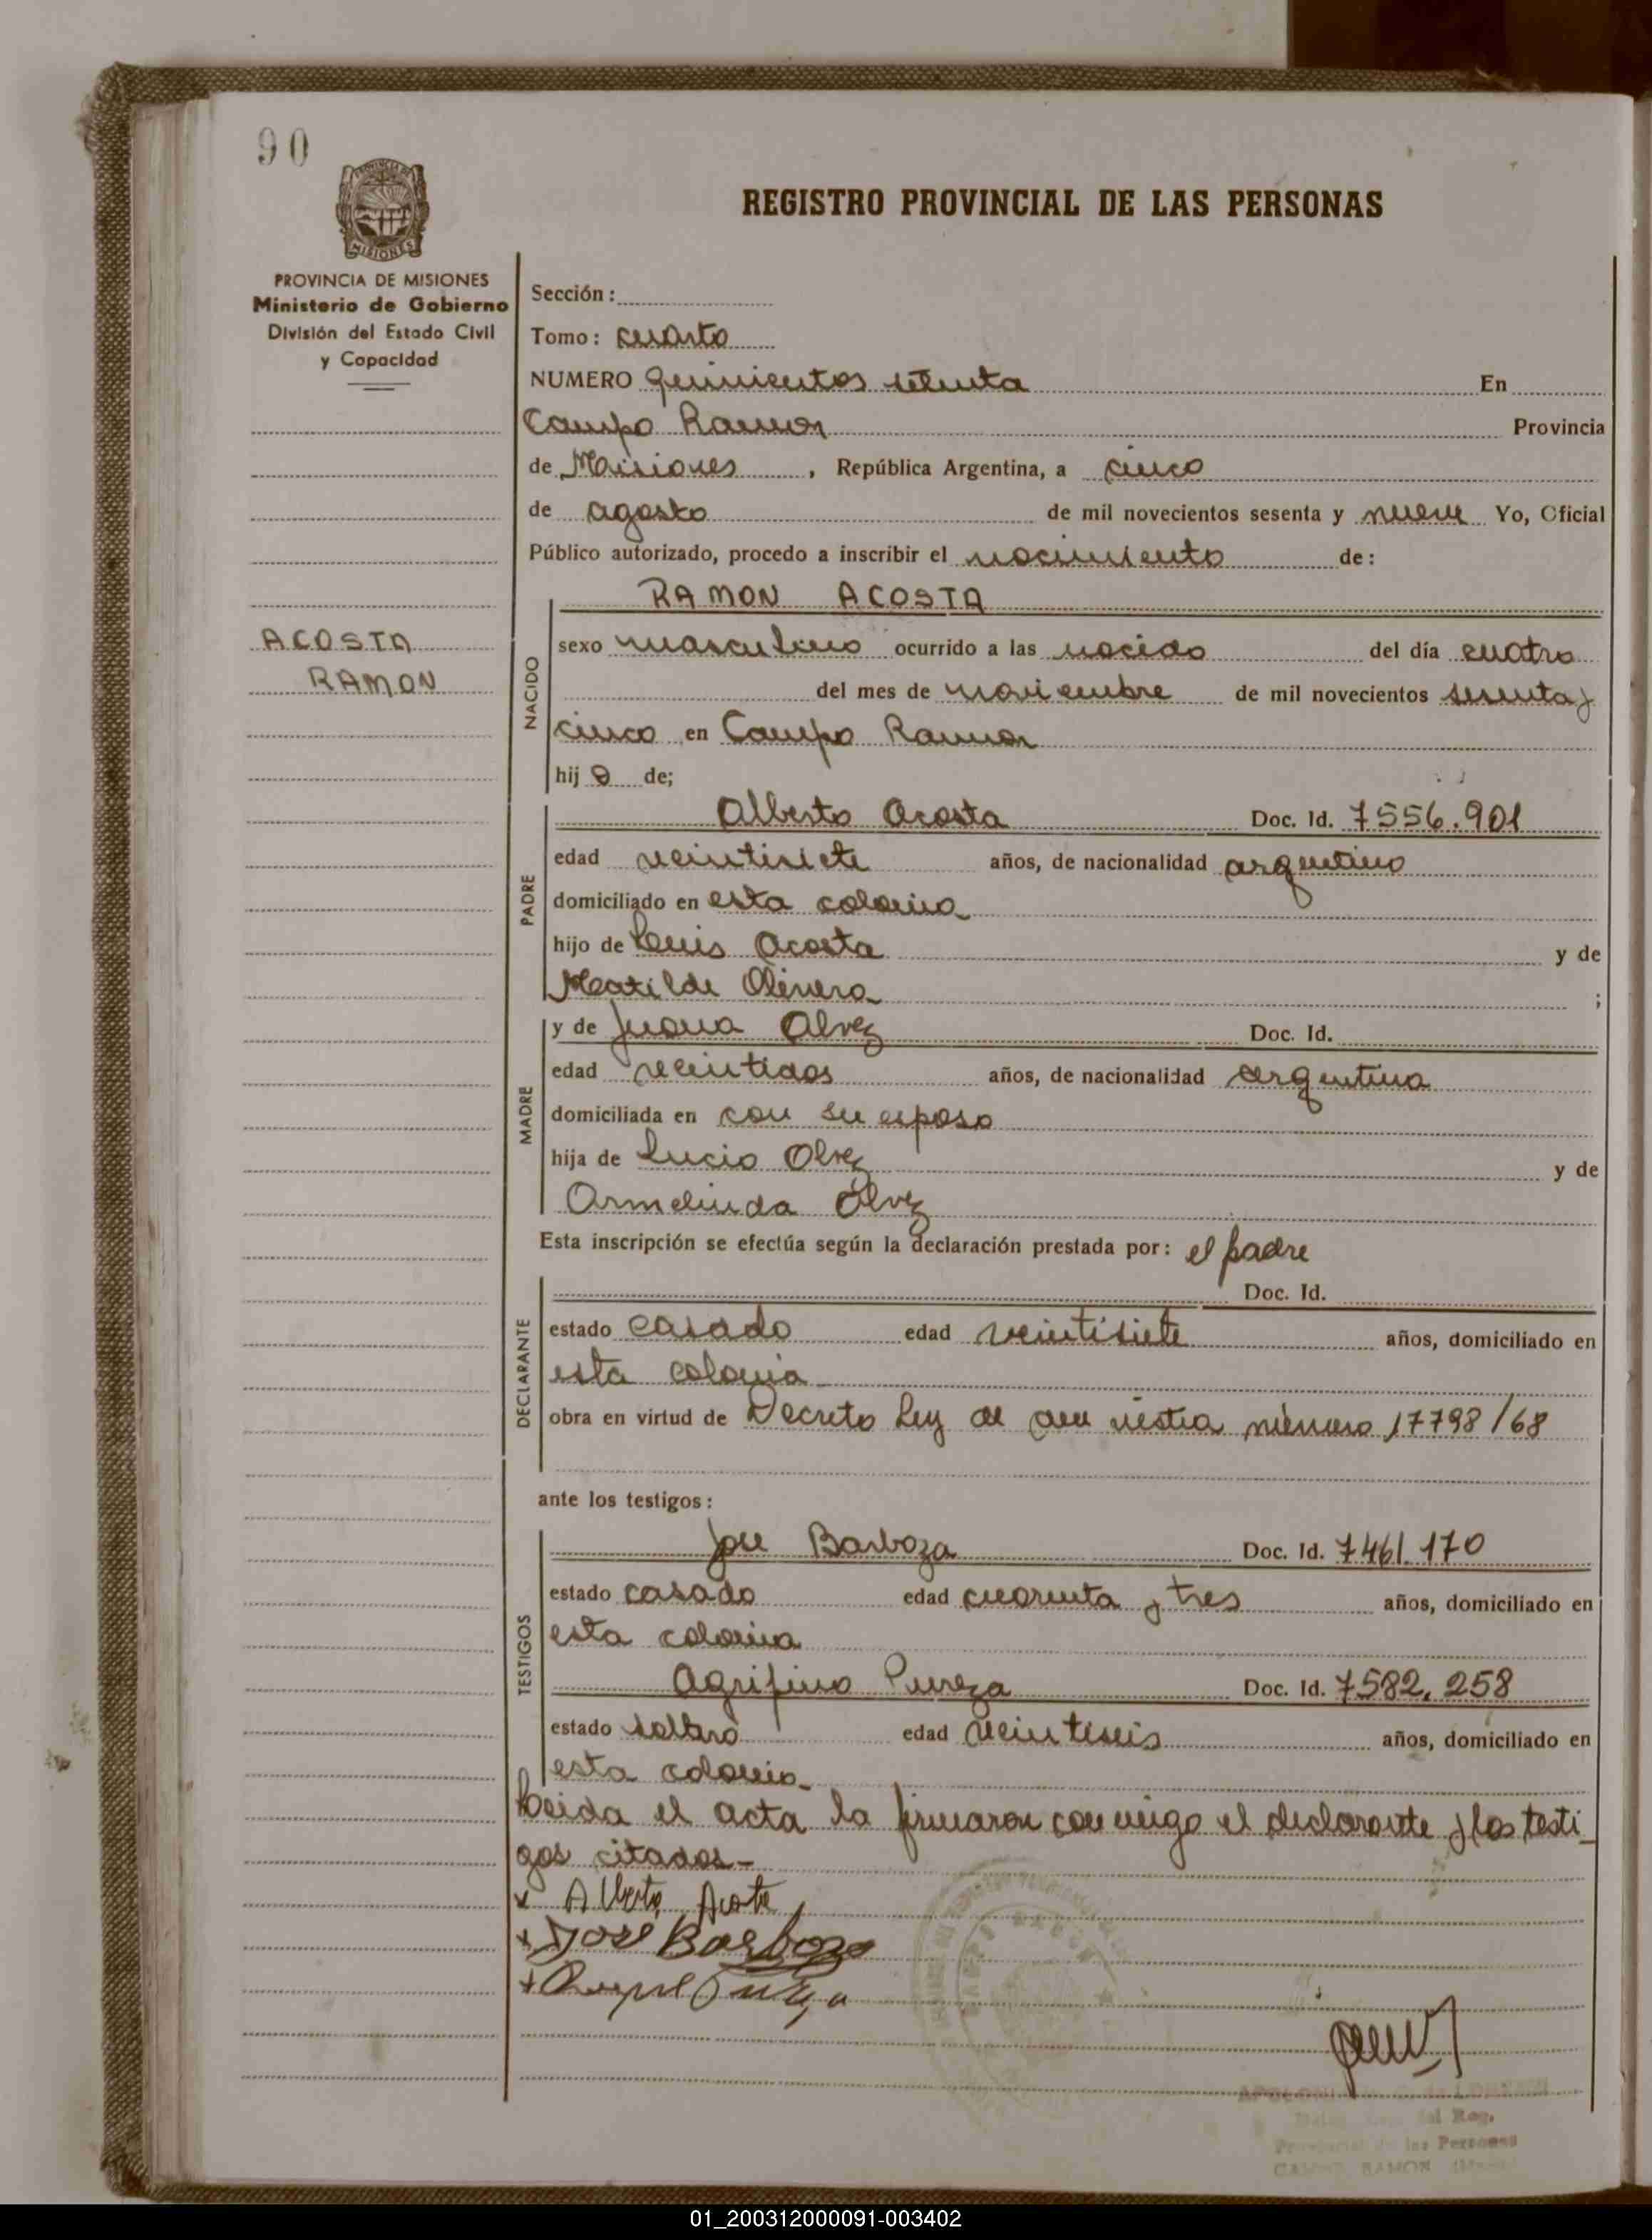 90
PROVINCIA DE MISIONES
Ministerio de Gobierno
División del Estado Civil
y Capacidad
REGISTRO PROVINCIAL DE LAS PERSONAS
Sección:
Tomo: cuarto
NUMERO quinientos setenta En
Campo Ramon Provincia
de Misiones, República Argentina, a cinco
de agosto de mil novecientos sesenta y nueve Yo, Oficial
Público autorizado, procedo a inscribir el nacimiento de:
RAMON ACOSTA
ACOSTA
RAMON
NACIDO
sexo masculino ocurrido a las nacido del día cuatro
del mes de noviembre de mil novecientos sesenta y
cinco en Campo Ramon
hijo de;
PADRE
Alberto Acosta Doc. Id. 7556.901
edad veintisiete años, de nacionalidad argentino
domiciliado en esta colonia
hijo de Luis Acosta y de
Matilde Olivera ;
MADRE
y de Juana Alvez Doc. Id.
edad veintidos años, de nacionalidad argentina
domiciliada en con su esposo
hija de Lucio Olvez y de
Ormelinda Olvez
Esta inscripción se efectúa según la declaración prestada por: el padre
DECLARANTE
Doc. Id.
estado casado edad veintisiete años, domiciliado en
esta colonia
obra en virtud de Decreto Ley de amnistia número 17798/68
ante los testigos:
TESTIGOS
Jose Barboza Doc. Id. 7461.170
estado casado edad cuarenta y tres años, domiciliado en
esta colonia
Agrifino Pureza Doc. Id. 7582.258
estado soltero edad veintiseis años, domiciliado en
esta colonia
Leida el acta la firmaron conmigo el declarante y los testi
gos citados-
x Alberto Acosta
x Jose Barboza
del Reg.
Provincial de las Personas
CAMPO RAMON
01_200312000091-003402